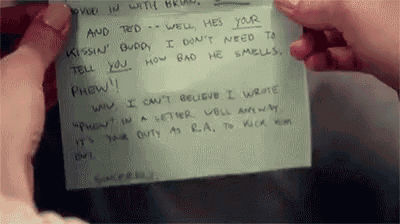 MOVED IN WITH BRIAN.
AND TED -- WELL, HE'S YOUR
KISSIN' BUDDY. I DON'T NEED TO
TELL YOU HOW BAD HE SMELLS.
PHEW!!
WOW, I CAN'T BELIEVE I WROTE
"PHEW" IN A LETTER. WELL ANYWAY,
IT'S YOUR DUTY AS R.A. TO KICK HIM
OUT.
SINCERELY,